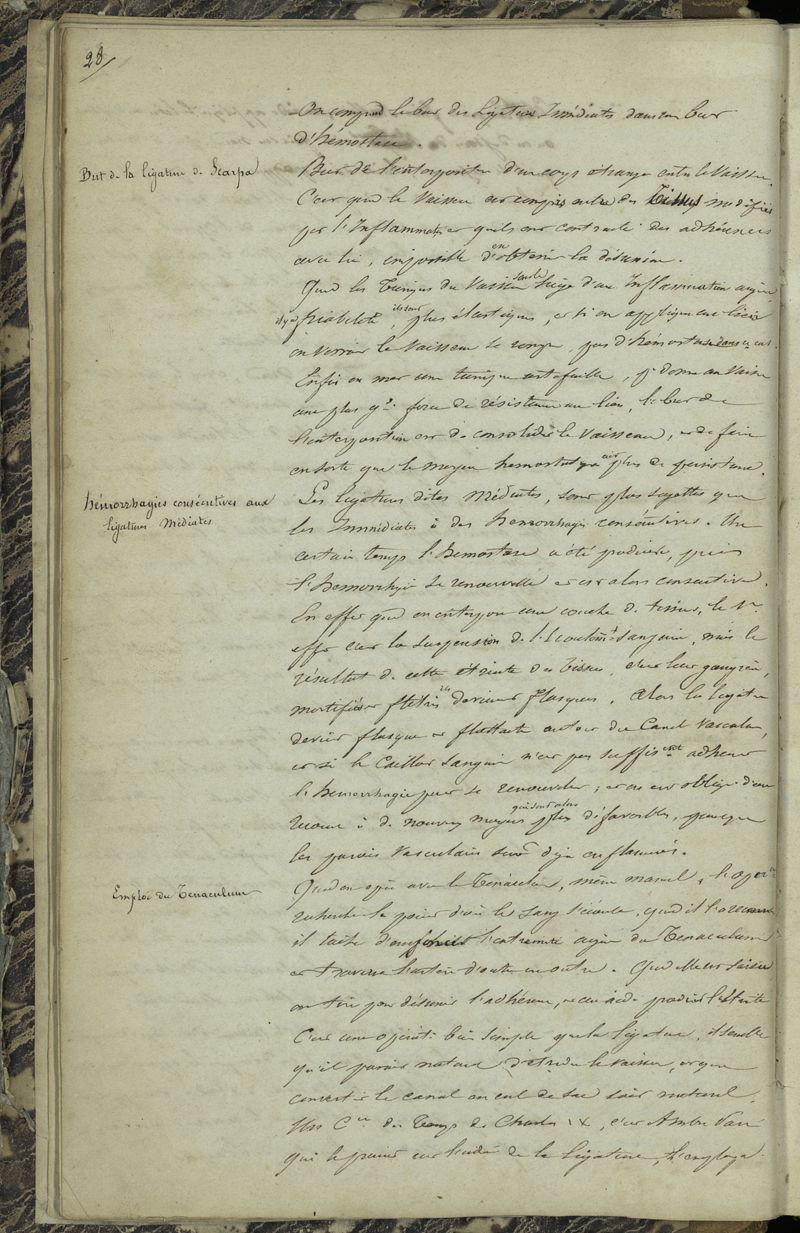 28/
On comprend le but des ligatures Immédiates dans un but
d'hémostase.
But de la ligature de Scarpa
But de l'interposition d'un corps étranger entre le Vaisseau.
C'est que le Vaisseau est compris entre des Tissus modifiés
par l'Inflammation et qu'ils ont contracté des adhérences
avec lui, impossible d'en obtenir la désunion.
Quand les Tuniques du Vaisseau sont le siège d'une Inflammation aigüe
il y a friabilité, ils sont plus élastiques, et si on applique une
on verrait le Vaisseau se rompre, pas d'hémostase dans ce cas
Enfin on met une tunique artificielle, donne au Vaisseau
une plus gde force de résistance au lien, le but de
l'interposition est de consolider le Vaisseau, et de faire
en sorte que le moyen hemostatique ait plus de persistance.
hémorrhagies consécutives aux
ligatures Médiates
Les ligatures dites Médiates, sont plus sujettes que
les Immédiates à des hemorrhagies consécutives. Un
certain temps l'hémostase a été produite, puis
l'hemorrhagie se renouvelle et est alors consecutive.
En effet quand on interpose une couche de tissus, le 1er
effet c'est la suspension de l'Ecoulemt sanguin, mais le
résultat de cette étreinte des tissus, c'est leur gangrène,
mortifiés et flétris ils deviennent flasques. Alors la ligature
devient flasque et flottante autour du Canal Vasculaire,
et si le Caillot sanguin n'est pas suffisamt adherent
l'hemorrhagie peut se renouveler; et on est obligé d'avoir
recours à de nouveaux moyens qui sont alors plus défavorables, puisque
les parois Vasculaires sont déjà enflammées.
Emploi du Tenaculum
Quand on opère avec le Tenaculum, même manuel, l'oper
recherche le point d'où le sang s'écoule, quand il l'a reconnu
il tâche d'enfoncer l'extremité aigüe du Tenaculum
et traverse l'artère d'outre en outre. Quand elle est saisie
on tire pour désunir l'adhérence, et un aide produit l'étreinte
C'est une opérat. bien simple que la ligature, il semble
qu'il paraît naturel d'étreindre le vaisseau, et que
convertir le canal en cul de sac soit naturel.
Un Cien du Temps de Charles IX, c'est Ambr. Paré
qui le premier eut l'idée de la ligature, l'employa